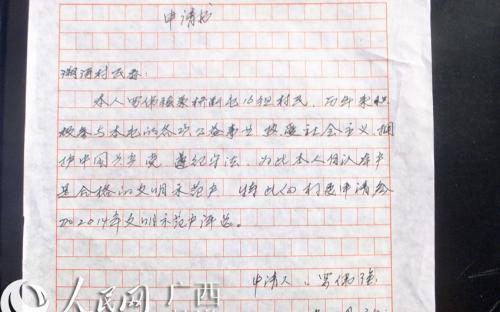 申请书
村民委:
本人 伟强 村 屯16组村民,历年来积
极参与本屯的各项公益事业 热爱社会主义,拥
护中国共产党 遵纪守法,为此本人自认本户
是合格的文明示范户 特此向村委申请参
加2014年文明示范户评选。
申请人: 伟强
人民网 广西